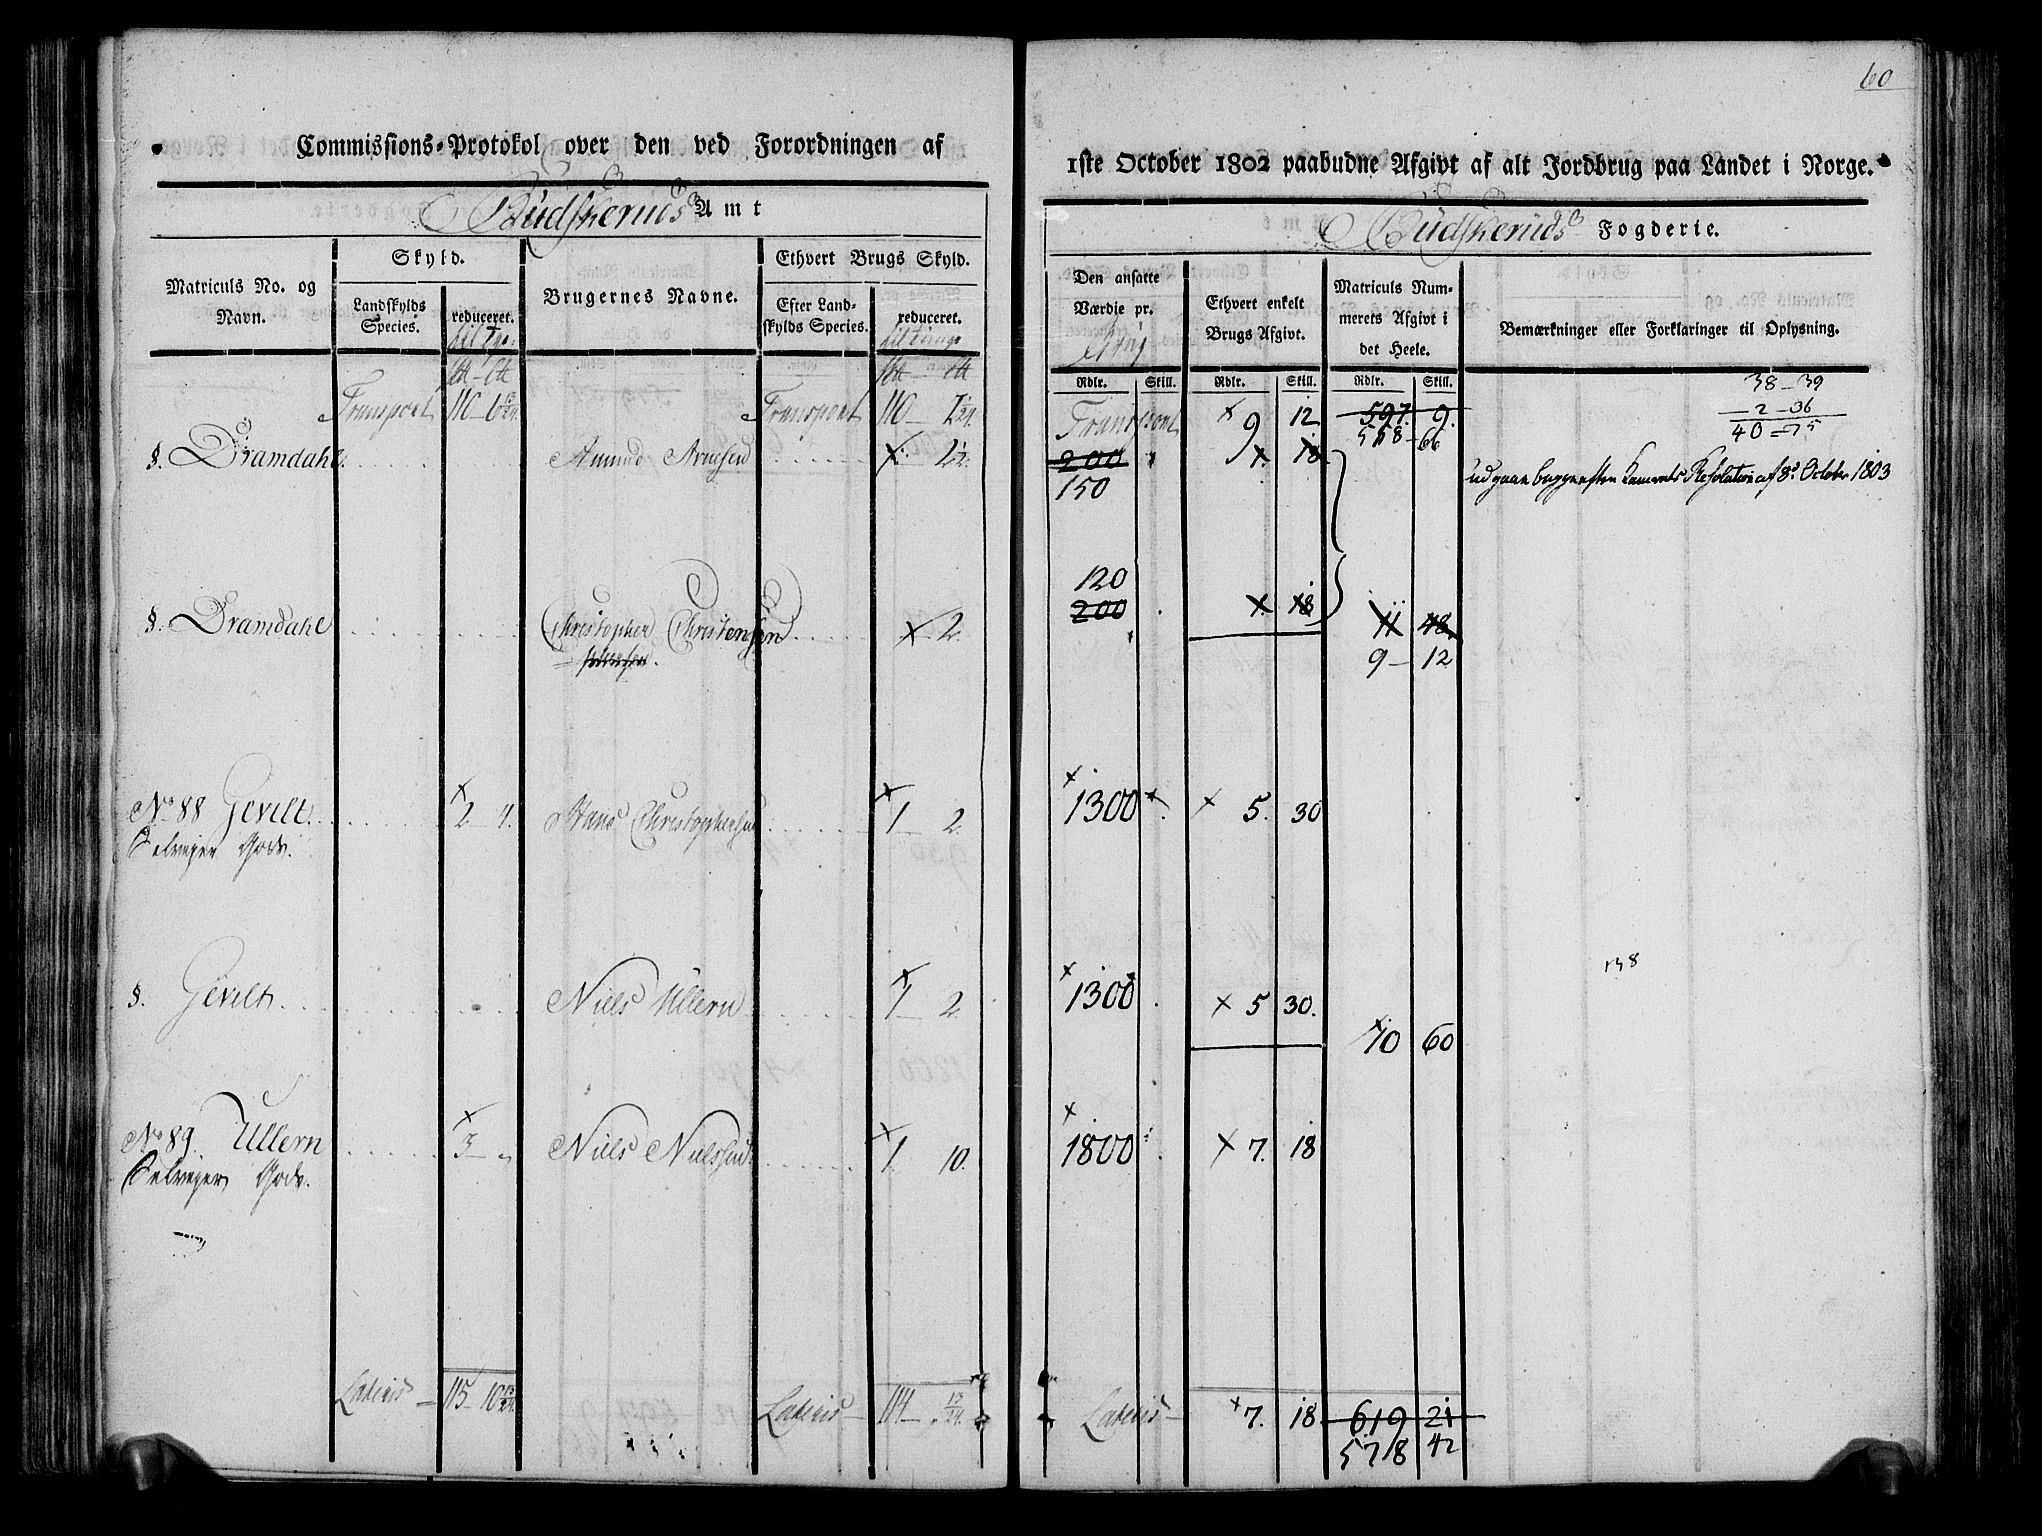 60
Commissions-Protokol over den ved Forordningen af
1ste October 1802 paabudne Afgivt af alt Jordbrug paa Landet i Norge.
Budskeruds Amt
Budskeruds Fogderie.
Matriculs No. og Navn.
Skyld.
Landskylds Species.
reduceret.
Brugernes Navne.
Ethvert Brugs Skyld.
Efter Landskylds Species.
reduceret.
Den ansatte Værdie pr.
Ethvert enkelt Brugs Afgivt.
Matriculs Nummerets Afgivt i det Heele.
Bemærkninger eller Forklaringer til Oplysning.
Rdlr. Skill. Rdlr. Skill. Rdlr. Skill.
38-39
2-36
40-75
Transport 110-6 13/24 Transport 110- Transport × 9 12 597. 9.
568-66
§. Dramdahl Amund Arnesen 200
150
udgaae begge efter Kamerets Resolution af 8de October 1803
120
§. Dramdahl Christopher Christensen × 2. 200 × 18 11 48.
9- 12
No 88 Gevelt × 2 4. Hans Christophersen × 1 2. × 1300 × 5. 30
Selveier Gods.
138
§. Gevelt Niels Ullern × 1 2. × 1300 × 5 30.
10 60
No 89. Ullern × 3 - „ Niels Nielsen × 1 10. × 1800 × 7. 18
Selveier Gods.
Lateris 115-10 13/24 Lateris 114- „ 13/24 Lateris × 7. 18 619 21
578 42